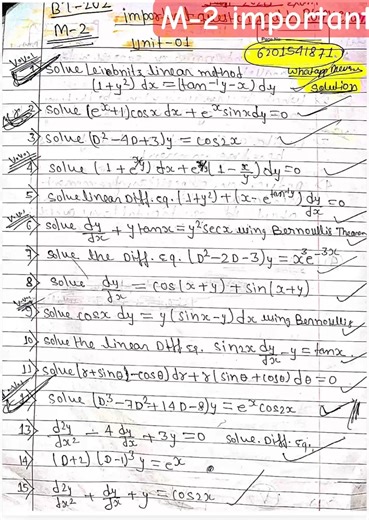 BT-202
M-2
impor
M-2 important
Unit-01
6201541871
Whatapp
solution
1> solve leibnitz linear method
(1+y²) dx = (tan⁻¹y-x) dy
2> solve (eˣ+1)cosx dx + eˣ sinx dy = 0
3> solve (D²-4D+3)y = cos2x
4> solve (1+e^{x/y}) dx + e^{x/y}(1-x/y) dy = 0
5> solve linear Diff. eq. (1+y²) + (x-e^{tan⁻¹y}) dy/dx = 0
6> solve dy/dx + y tanx = y² secx using Bernoullis Theorem
7> solve the Diff. eq. (D²-2D-3)y = x³e^{-3x}
8> solve dy/dx = cos(x+y) + sin(x+y)
9> solve cosx dy = y(sinx-y) dx using Bernoullis
10> solve the linear Diff eq. sin2x dy/dx - y = tanx
11> solve (r+sinθ-cosθ) dr + r(sinθ+cosθ) dθ = 0
12> solve (D³-7D²+14D-8)y = eˣ cos2x
13> d²y/dx² - 4 dy/dx + 3y = 0 solve. Diff. eq.
14> (D+2) (D-1)³y = eˣ
15> d²y/dx² + dy/dx + y = cos2x